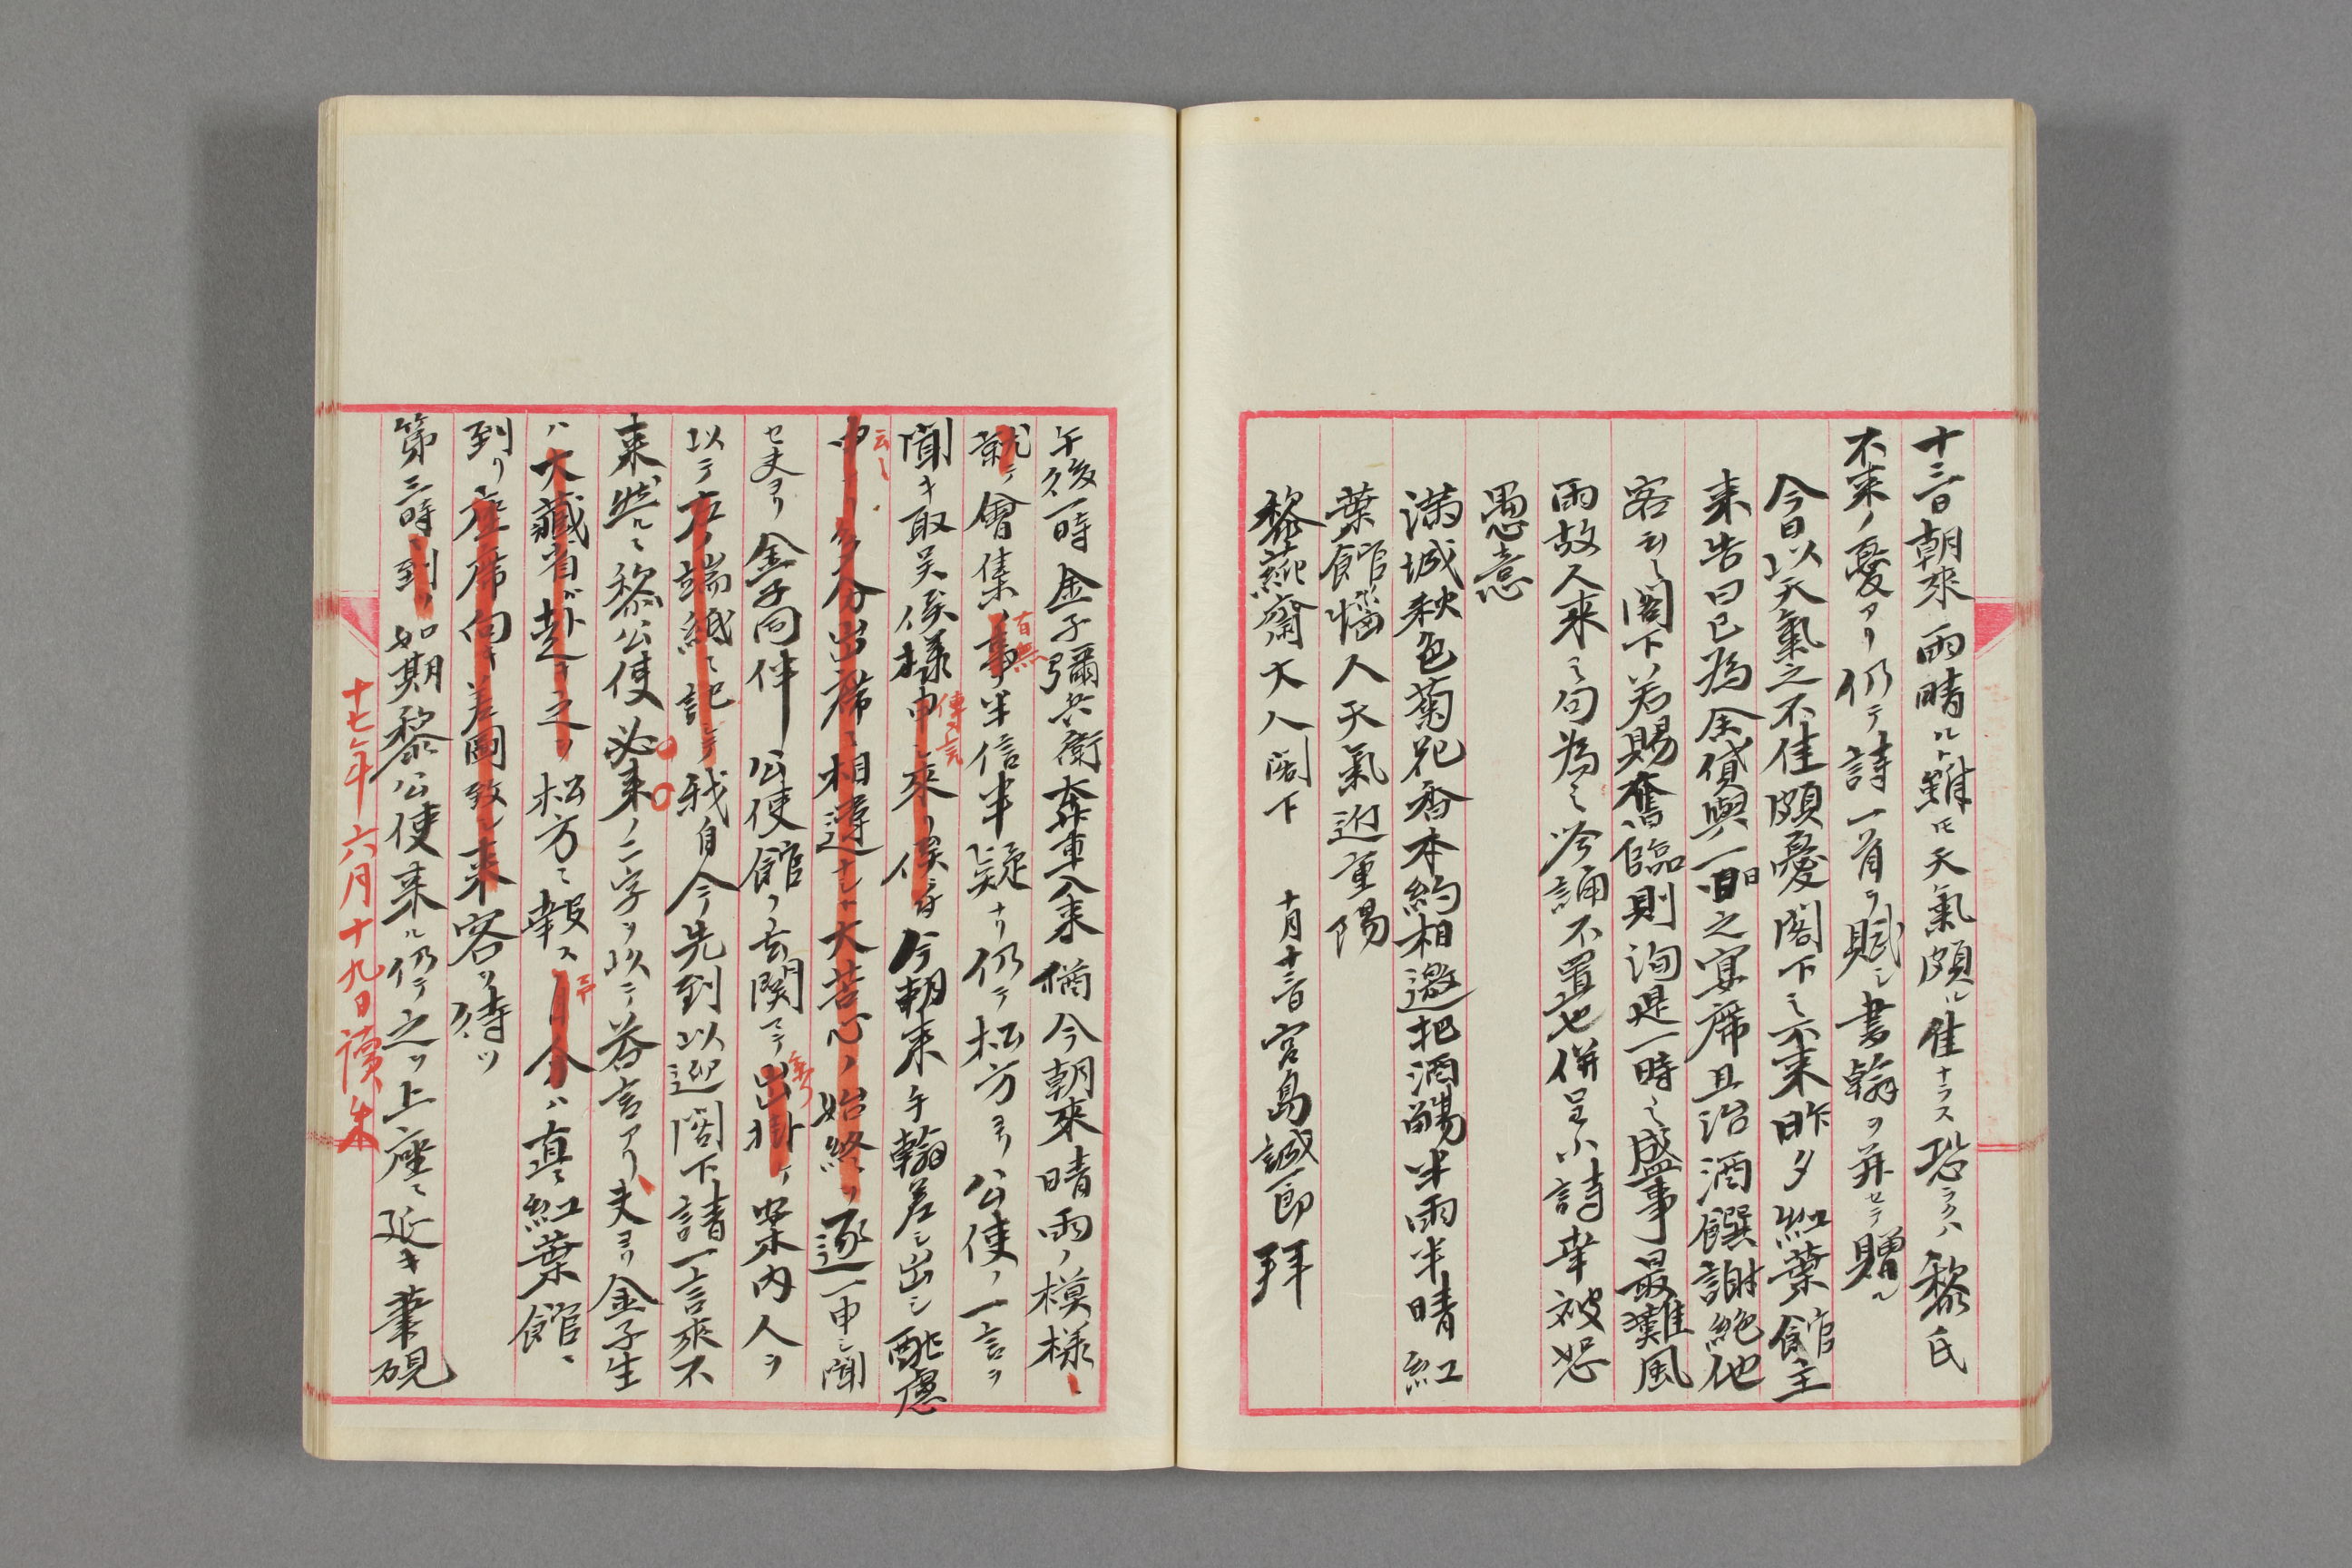 十三日朝來雨晴ルト雖ヒ天氣頗ル佳ナラス恐ラクハ黎氏
不来ノ憂アリ仍テ詩一首ヲ賦シ書翰ヲ并セテ贈ル
今日以天氣之不佳頗憂閣下之不来昨夕紅葉館主
来告曰已為余貸與一日之宴席且治酒饌謝絶他
客云々閣下若賜奮臨則洵是一時之盛事最難風
雨故人来之句為之吟誦不置也併呈小詩幸被恕
愚意
満城秋色菊花香本約相邀把酒觴半雨半晴紅
葉館惱人天氣近重陽
黎蒓齋大人閣下　十月十三日宮島誠一郎拜
午後一時金子彌兵衛奔車入来猶今朝來晴雨ノ模様ニ
就テ會集ノ事半信半疑ナリ仍テ松方ヨリ公使ノ一言ヲ
有無
聞キ取呉候様申シ來リ候
傳言
今朝来手翰差シ出シ酖慮
云々
多分出席ニ相違ナシト大苦心ノ始終ヲ逐一申シ聞
セ夫ヨリ金子同伴公使館ヲ玄関マテ出掛ケ案内人ヲ
以テ右ノ端紙ニ記シテ我自今先到以迎閣下請一言來不
来然ルニ黎公使必来ノ二字ヲ以テ答言アリ夫ヨリ金子生
ハ大藏省ヘ赴キ之ヲ松方ニ報ス自分ハ直ニ紅葉館ニ
到リ座席向キ差圖致シ来客ヲ待ツ
第三時到リ如期黎公使来ル仍テ之ヲ上座ニ延キ筆硯
十七年六月十九日讀朱